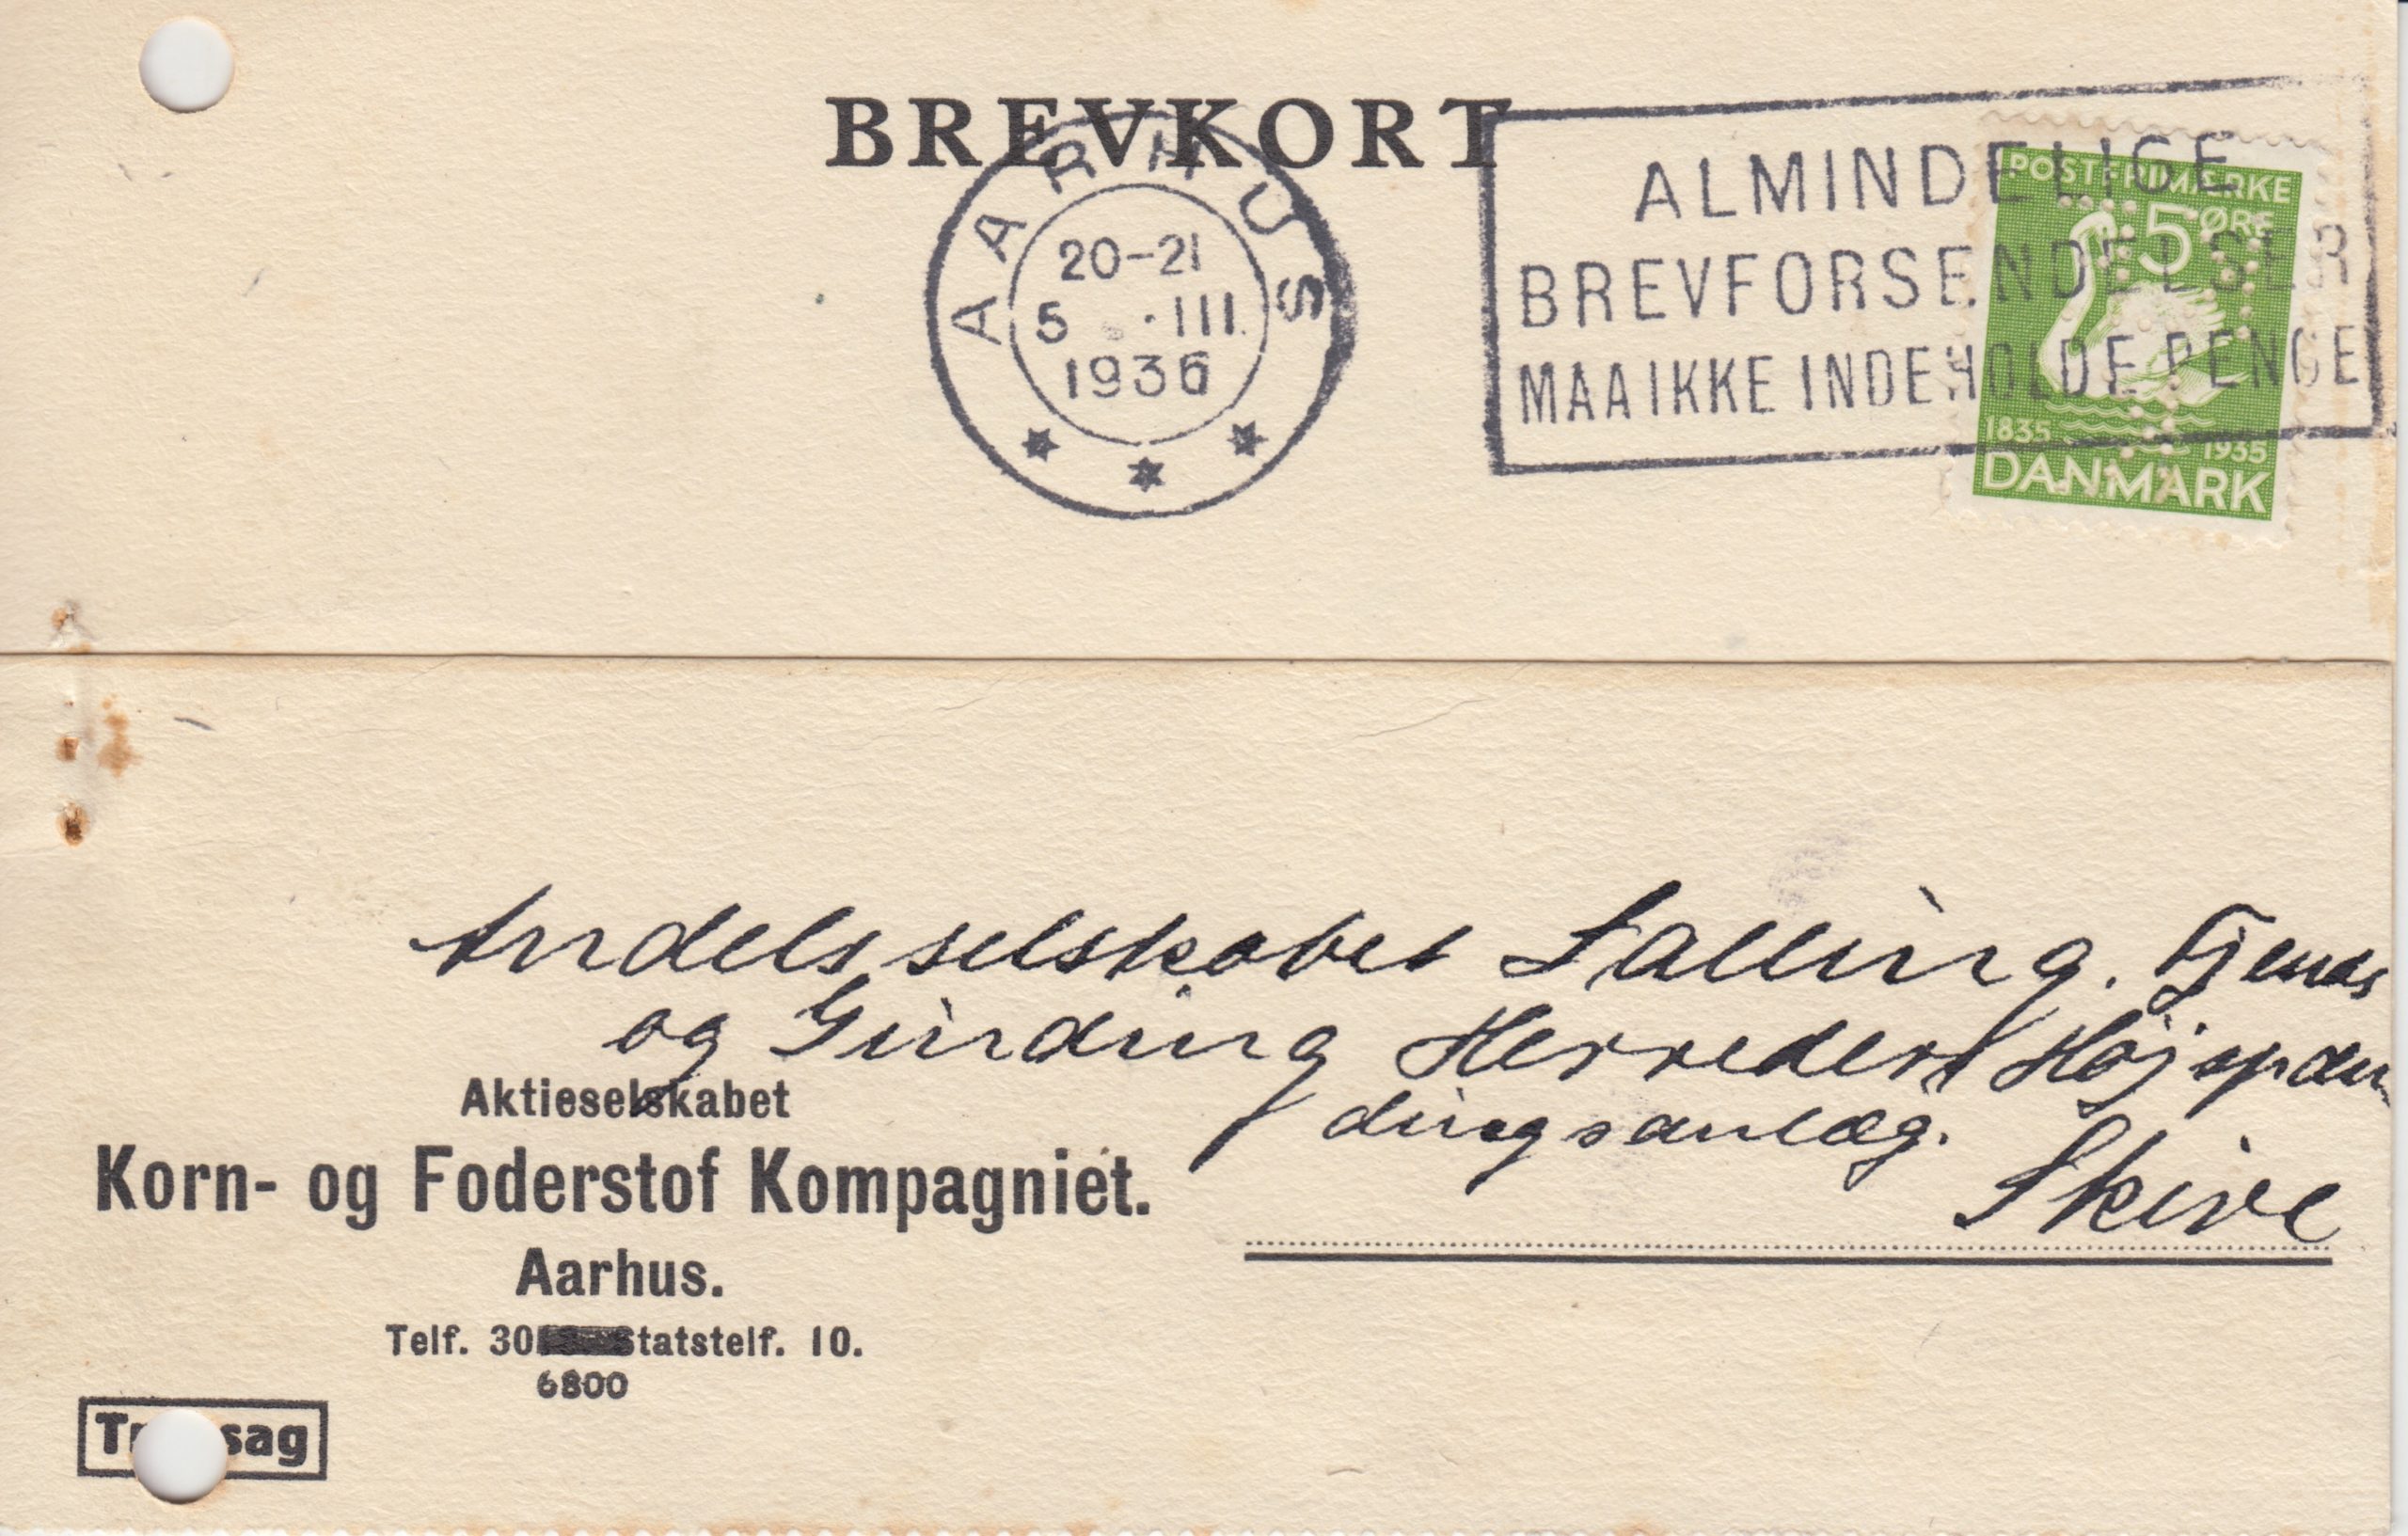 BREVKORT
AARHUS
20-21
5 ·III.
1936
ALMINDELIGE
BREVFORSENDELSER
MAA IKKE INDEHOLDE PENGE
POSTFRIMÆRKE
5 ØRE
1835 1935
DANMARK
Andelsselskabet Salling. Fjends
og Ginding Herreders Højspæn
dingsanlæg.
Skive
Aktieselskabet
Korn- og Foderstof Kompagniet.
Aarhus.
Telf. 30 Statstelf. 10.
6800
Tr sag